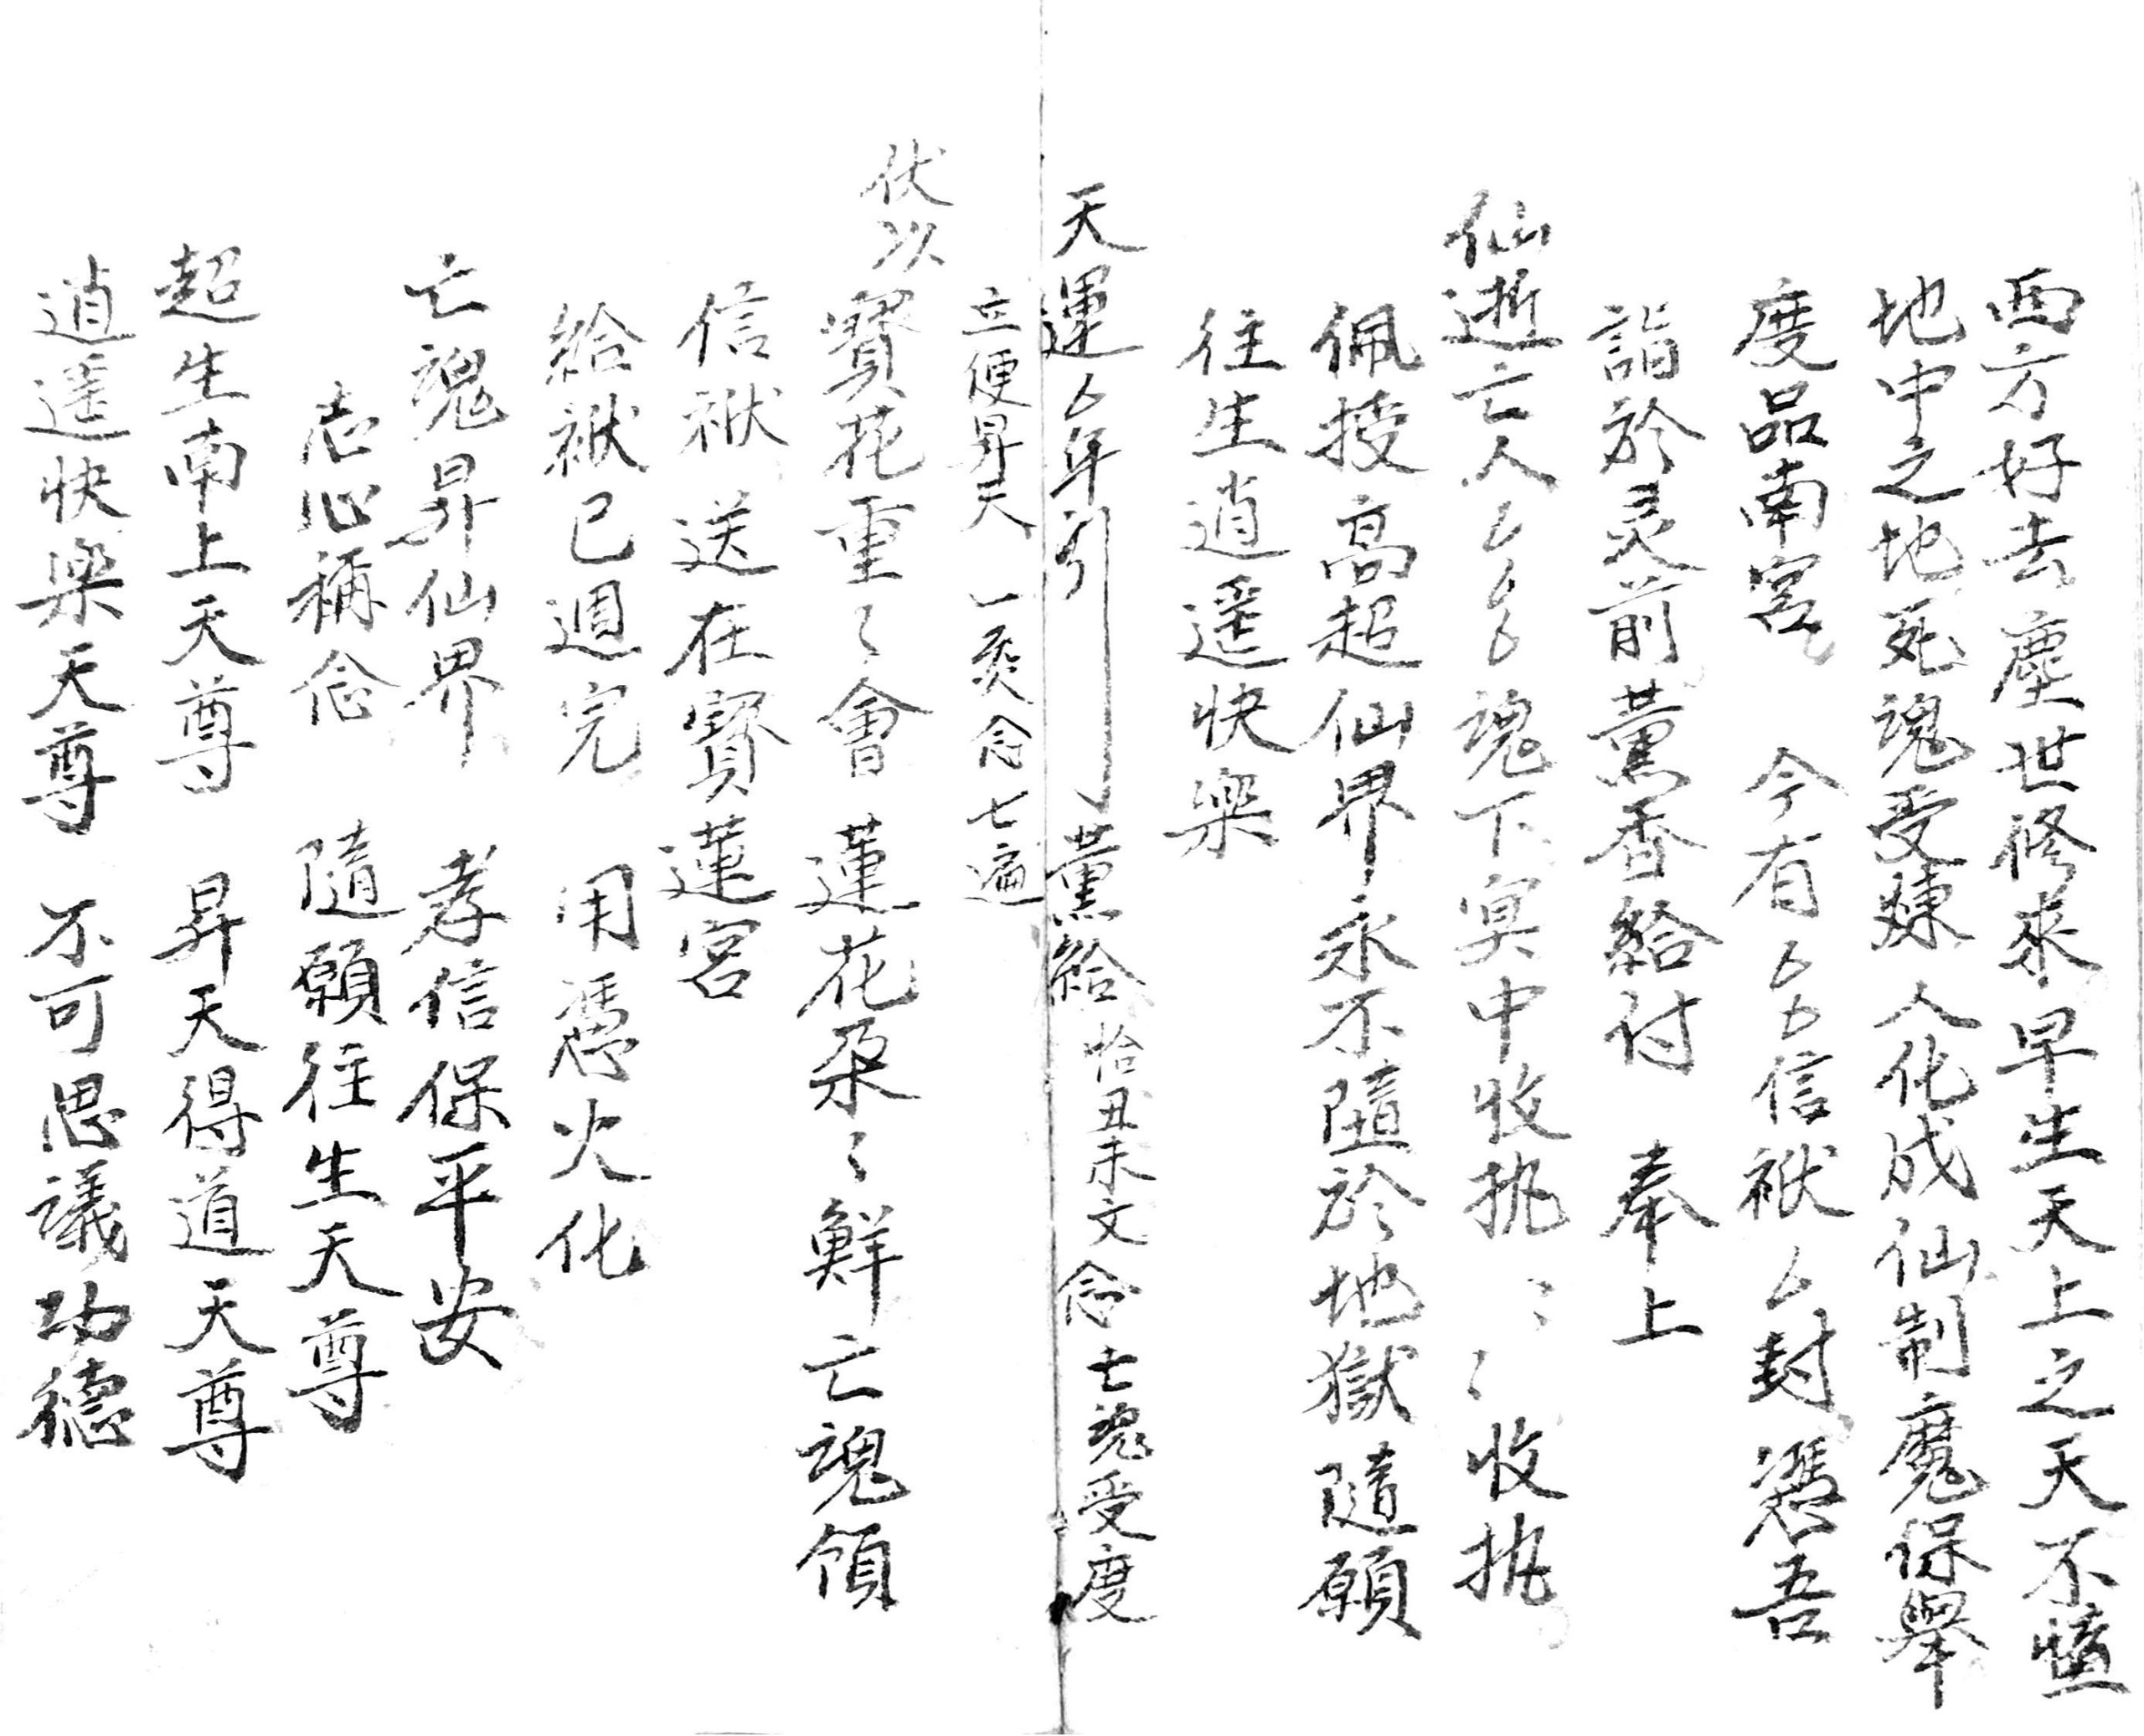 西方好去塵世修來早生天上之天不墮
地中之地死魂受煉人化成仙制魔保舉
度品南宮 今有厶厶信袱厶封憑吾
詣於灵前薰香給付 奉上
仙逝亡人厶厶厶魂下冥中收执〻〻收执
佩授高超仙界永不墮於地獄隨願
往生逍遥快樂
天運厶年 引 薰給 丑未文念 亡魂受度
立便昇天 一 念七遍
伏以 寳花重〻會 蓮花朶〻鮮 亡魂領
信袱 送在寳蓮宮
給袱已週完 用憑火化
亡魂昇仙界 孝信保平安
志心稱念 隨願往生天尊
超生南上天尊 昇天得道天尊
逍遥快樂天尊 不可思議功德